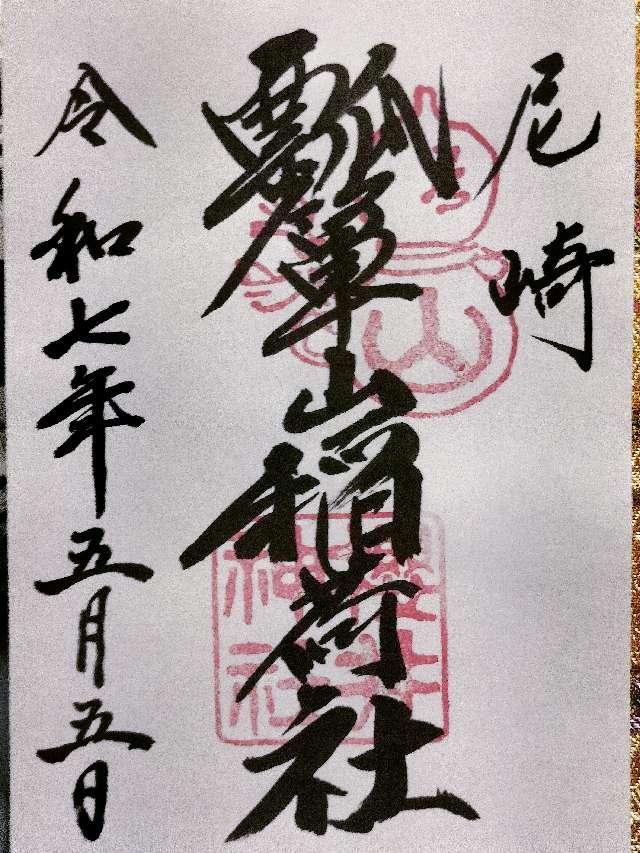 尼崎
瓢箪山稲荷社
令和七年五月五日
櫻井
神社